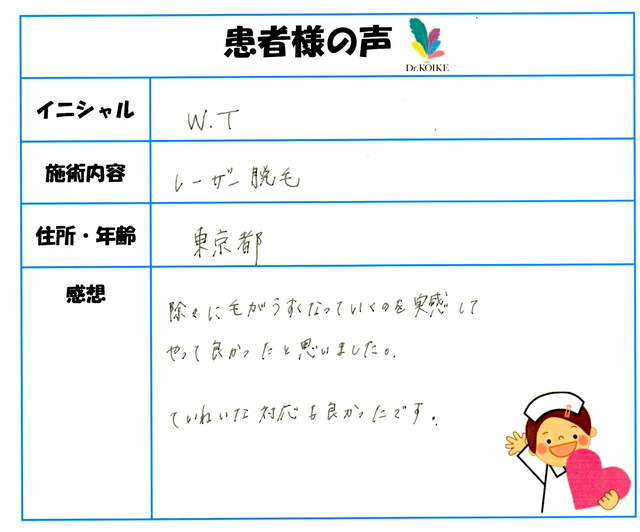 患者様の声
Dr.KOIKE
イニシャル
W.T
施術内容
レーザー脱毛
住所・年齢
東京都
感想
除々に毛がうすくなっていくのを実感して
やって良かったと思いました。
ていねいな対応も良かったです。